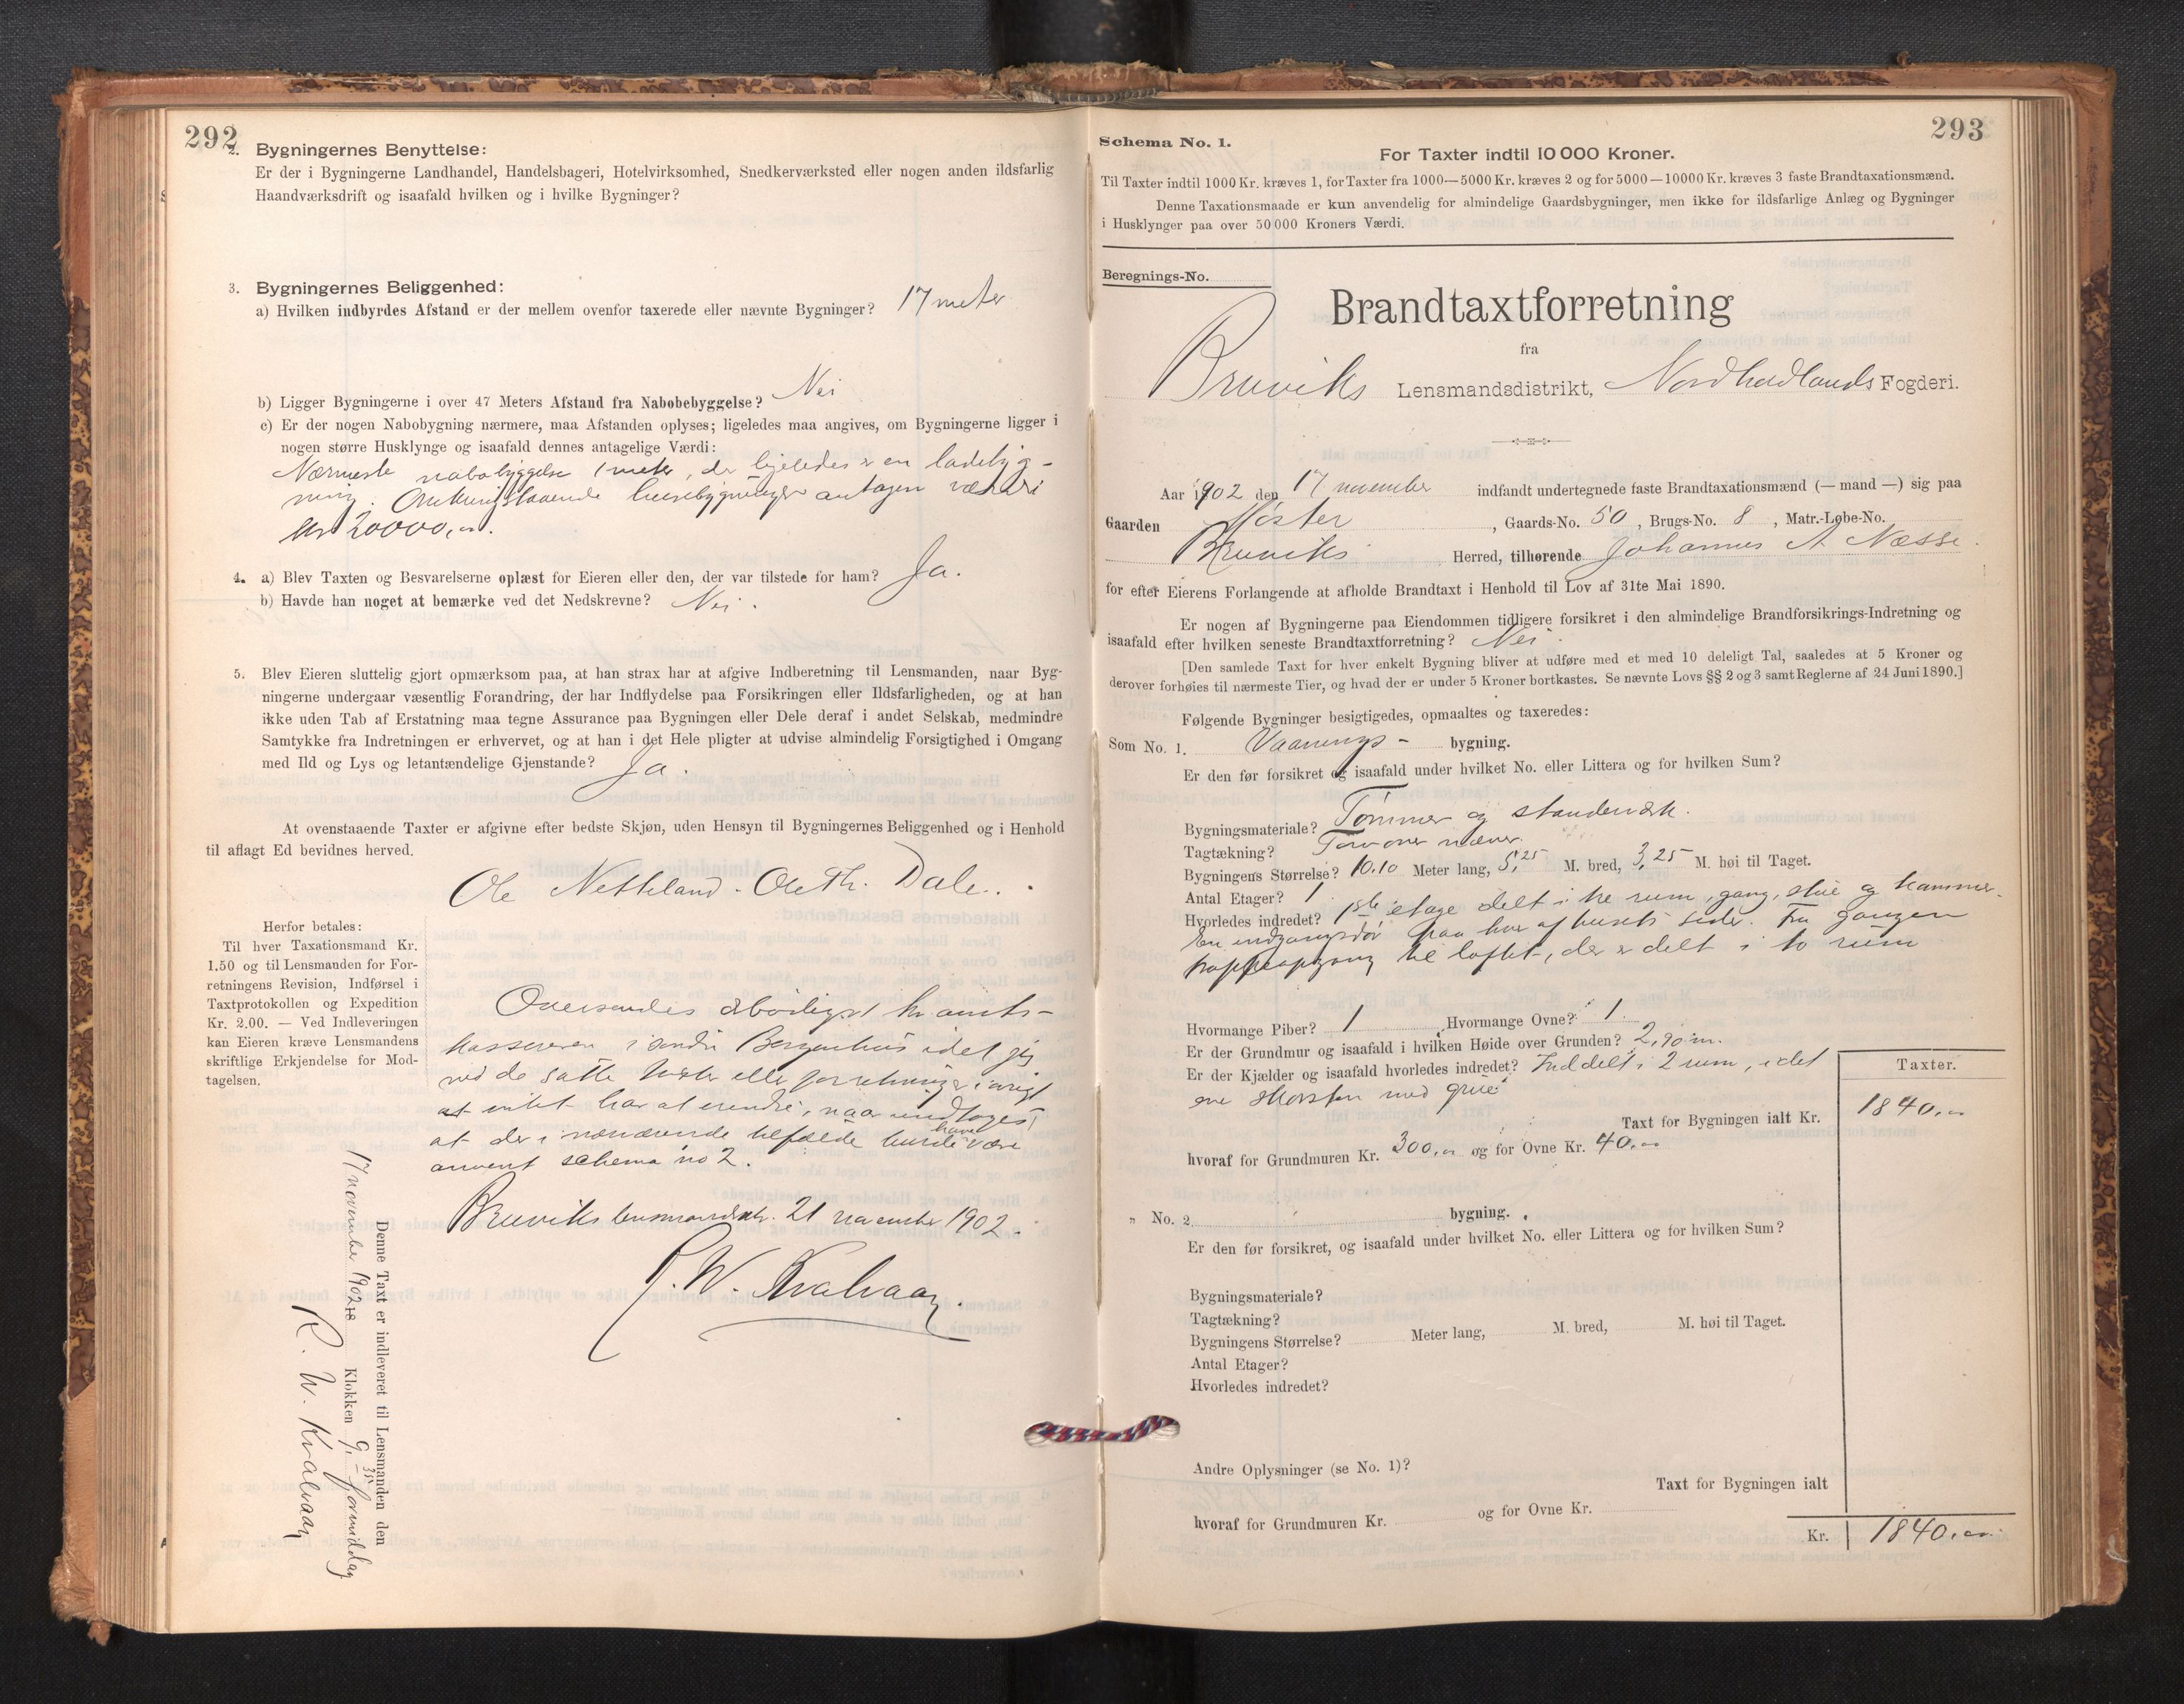 292
2. Bygningernes Benyttelse:
Er der i Bygningerne Landhandel, Handelsbageri, Hotelvirksomhed, Snedkerværksted eller nogen anden ildsfarlig
Haandværksdrift og isaafald hvilken og i hvilke Bygninger?
3. Bygningernes Beliggenhed:
a) Hvilken indbyrdes Afstand er der mellem ovenfor taxerede eller nævnte Bygninger? 17 meter
b) Ligger Bygningerne i over 47 Meters Afstand fra Nabobebyggelse? Nei
c) Er der nogen Nabobygning nærmere, maa Afstanden oplyses; ligeledes maa angives, om Bygningerne ligger i
nogen større Husklynge og isaafald dennes antagelige Værdi:
Nærmeste nabobyggelse 1 meter, der ligeledes er en ladebyg-
ning. Omkringstaaende husebygninger antagen værdi
Kr 20000,00.
4. a) Blev Taxten og Besvarelserne oplæst for Eieren eller den, der var tilstede for ham? Ja.
b) Havde han noget at bemærke ved det Nedskrevne? Nei.
5. Blev Eieren sluttelig gjort opmærksom paa, at han strax har at afgive Indberetning til Lensmanden, naar Byg-
ningerne undergaar væsentlig Forandring, der har Indflydelse paa Forsikringen eller Ildsfarligheden, og at han
ikke uden Tab af Erstatning maa tegne Assurance paa Bygningen eller Dele deraf i andet Selskab, medmindre
Samtykke fra Indretningen er erhvervet, og at han i det Hele pligter at udvise almindelig Forsigtighed i Omgang
med Ild og Lys og letantændelige Gjenstande? Ja.
At ovenstaaende Taxter er afgivne efter bedste Skjøn, uden Hensyn til Bygningernes Beliggenhed og i Henhold
til aflagt Ed bevidnes herved.
Ole Netteland. Ole Th. Dale.
Herfor betales:
Til hver Taxationsmand Kr.
1.50 og til Lensmanden for For-
retningens Revision, Indførsel i
Taxtprotokollen og Expedition
Kr. 2.00. — Ved Indleveringen
kan Eieren kræve Lensmandens
skriftlige Erkjendelse for Mod-
tagelsen.
Oversendes ærbødigst hr. amts-
kassereren i søndre Bergenhus idet jeg
ved de satte taxter eller forretninger iøvrigt
at intet har at erindre, naar undtages,
at der i nærværende tilfælde burde have være
anvent schema no 2.
Bruviks lensmandsk. 21 november 1902.
R. W. Kvalvaag.
Denne Taxt er indleveret til Lensmanden den
17 november 1902 Klokken 9,35 formiddag
R. W. Kvalvaag
293
Schema No. 1.
For Taxter indtil 10 000 Kroner.
Til Taxter indtil 1000 Kr. kræves 1, for Taxter fra 1000—5000 Kr. kræves 2 og for 5000—10000 Kr. kræves 3 faste Brandtaxationsmænd.
Denne Taxationsmaade er kun anvendelig for almindelige Gaardsbygninger, men ikke for ildsfarlige Anlæg og Bygninger
i Husklynger paa over 50 000 Kroners Værdi.
Beregnings-No.
Brandtaxtforretning
fra
Bruviks Lensmandsdistrikt, Nordhordlands Fogderi.
Aar 1902 den 17 november indfandt undertegnede faste Brandtaxationsmænd (— mand —) sig paa
Gaarden Møster, Gaards-No. 50, Brugs-No. 8, Matr.-Løbe-No.
Bruviks Herred, tilhørende Johannes A Næsse.
for efter Eierens Forlangende at afholde Brandtaxt i Henhold til Lov af 31te Mai 1890.
Er nogen af Bygningerne paa Eiendommen tidligere forsikret i den almindelige Brandforsikrings-Indretning og
isaafald efter hvilken seneste Brandtaxtforretning? Nei.
[Den samlede Taxt for hver enkelt Bygning bliver at udføre med et med 10 deleligt Tal, saaledes at 5 Kroner og
derover forhøies til nærmeste Tier, og hvad der er under 5 Kroner bortkastes. Se nævnte Lovs §§ 2 og 3 samt Reglerne af 24 Juni 1890.]
Følgende Bygninger besigtigedes, opmaaltes og taxeredes:
Som No. 1. Vaanings- bygning.
Er den før forsikret og isaafald under hvilket No. eller Littera og for hvilken Sum?
Bygningsmateriale? Tømmer og standerværk.
Tagtækning? Torv over næver.
Bygningens Størrelse? 10.10 Meter lang, 5,25 M. bred, 3,25 M. høi til Taget.
Antal Etager? 1
Hvorledes indredet? 1ste etage delt i tre rum, gang, stue og kammer.
En indgangsdør paa hver af husets sider. Fra gangen
trappeopgang til loftet, der er delt i to rum
Hvormange Piber? 1 Hvormange Ovne? 1.
Er der Grundmur og isaafald i hvilken Høide over Grunden? 2,90 m.
Er der Kjælder og isaafald hvorledes indredet? Inddelt i 2 rum, i det
ene skorsten med grue
Taxter.
Taxt for Bygningen ialt Kr. 1840,00
hvoraf for Grundmuren Kr. 300,00 og for Ovne Kr. 40,00
„ No. 2 bygning.
Er den før forsikret, og isaafald under hvilket No. eller Littera og for hvilken Sum?
Bygningsmateriale?
Tagtækning?
Bygningens Størrelse? Meter lang, M. bred, M. høi til Taget.
Antal Etager?
Hvorledes indredet?
Andre Oplysninger (se No. 1)?
Taxt for Bygningen ialt
hvoraf for Grundmuren Kr. og for Ovne Kr.
Kr. 1840,00